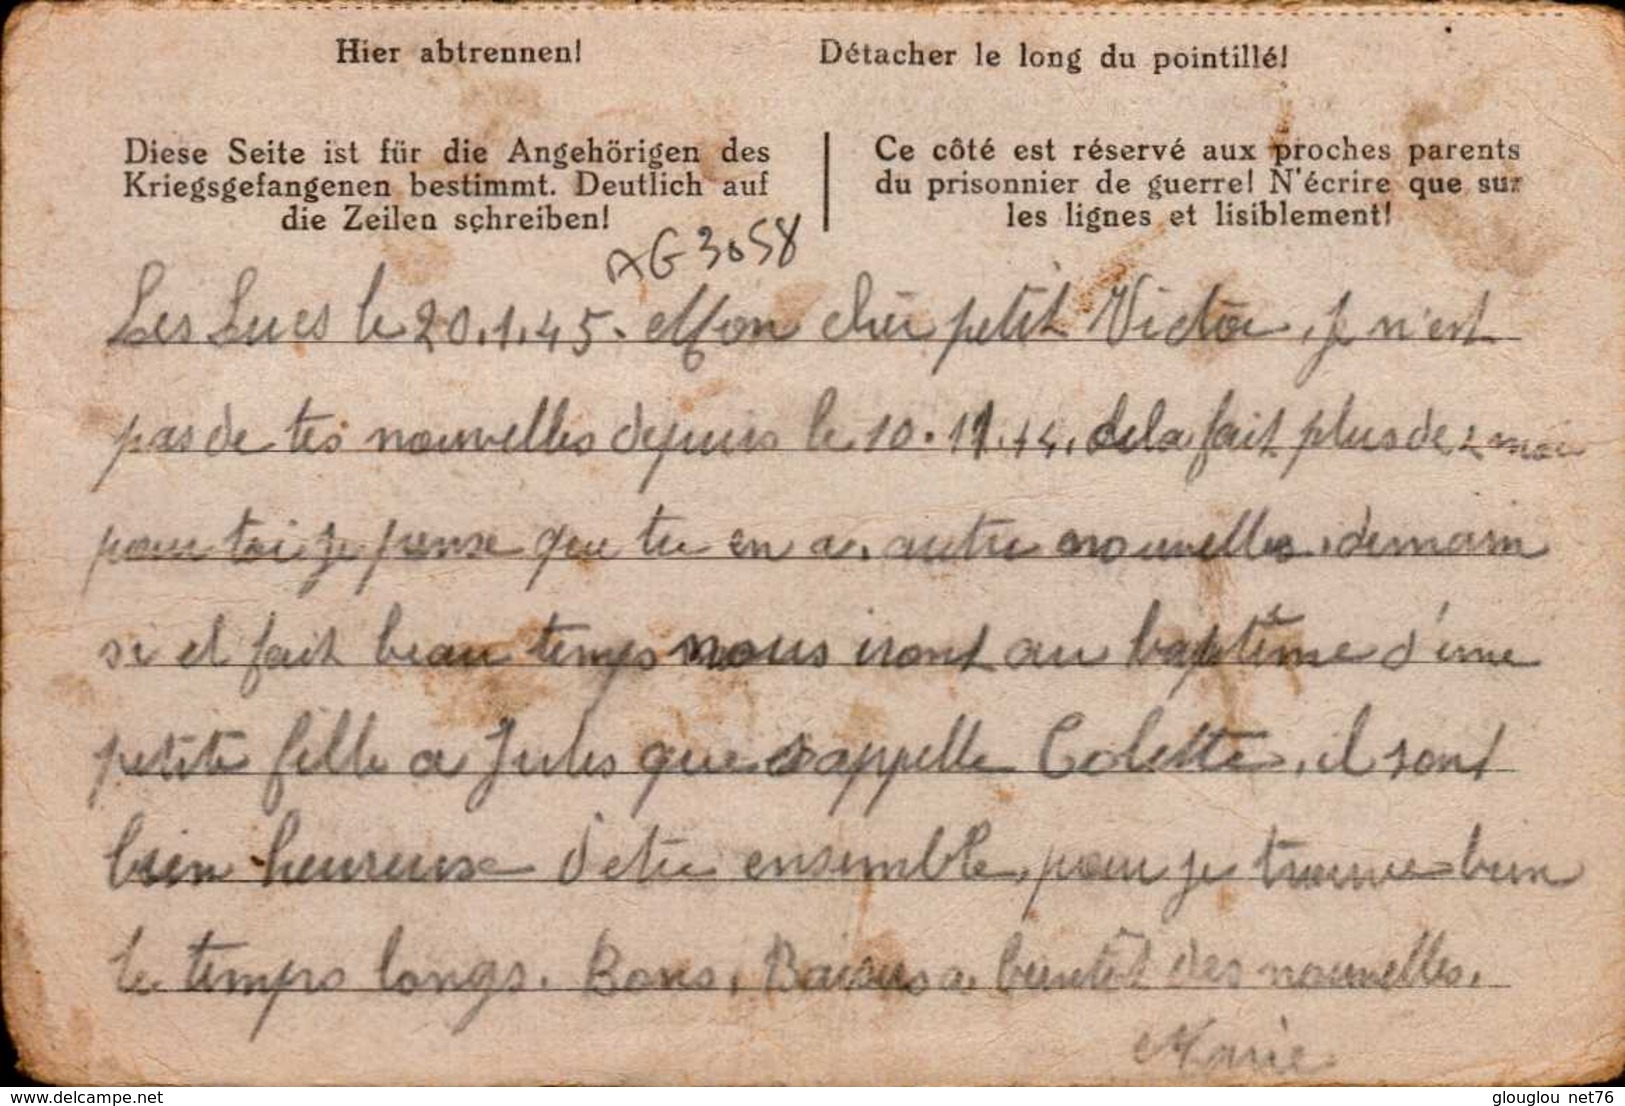 Hier abtrennen! Détacher le long du pointillé!
Diese Seite ist für die Angehörigen des
Kriegsgefangenen bestimmt. Deutlich auf
die Zeilen schreiben!
Ce côté est réservé aux proches parents
du prisonnier de guerre! N'écrire que sur
les lignes et lisiblement!
AG 3058
Les Lucs le 20.1.45. Mon cher petit Victor, Je n'est
pas de tes nouvelles depuis le 10.11.44. cela fait plus de 2 mois
pour toi je pense que tu en a. autre nouvelles. demain
si il fait beau temps nous iront au baptême d'une
petite fille a Jules que s'appelle Colette, il sont
bien heureuse d'etre ensemble, pour je trouve bien
le temps longs. Bons, Baisers a bientôt des nouvelles.
Marie
delcampe.net glouglou_net76